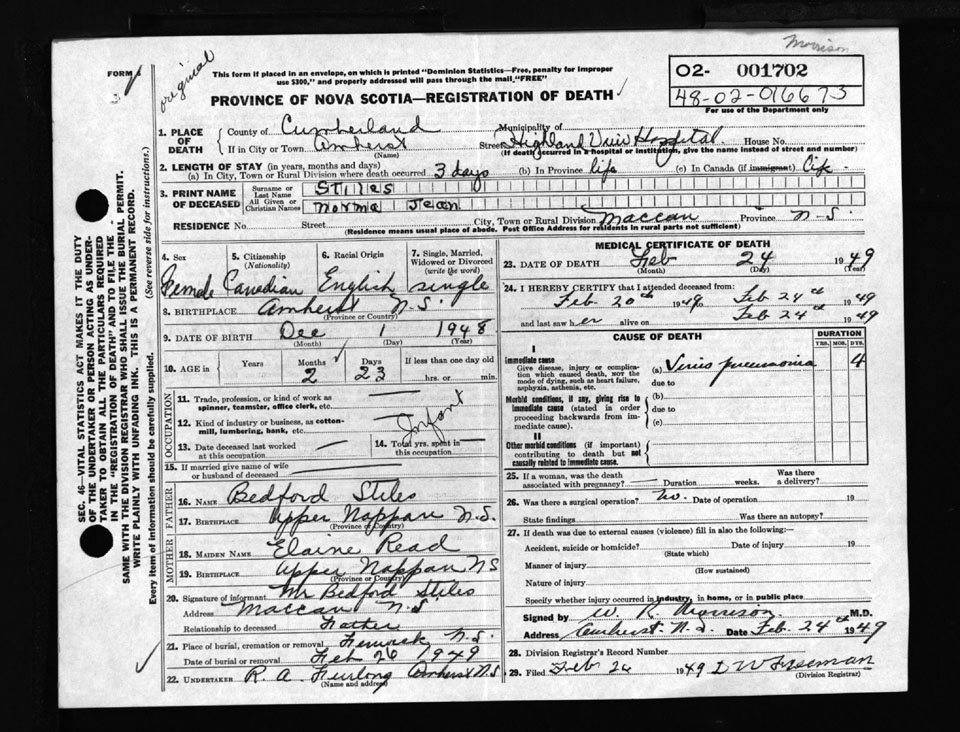 Morrison
FORM
original
This form if placed in an envelope, on which is printed "Dominion Statistics—Free, penalty for improper
use $300," and properly addressed will pass through the mail, "FREE"
PROVINCE OF NOVA SCOTIA—REGISTRATION OF DEATH
02- 001702
48-02-016673
For use of the Department only
1. PLACE OF DEATH { County of Cumberland Municipality of
If in City or Town Amherst (Name) Street Highland View Hospital House No.
(If death occurred in a hospital or institution, give the name instead of street and number)
2. LENGTH OF STAY (in years, months and days)
(a) In City, Town or Rural Division where death occurred 3 days (b) In Province life (c) In Canada (if immigrant) Life
3. PRINT NAME OF DECEASED { Surname or Last Name Stiles
All Given or Christian Names Norma Jean
RESIDENCE No. Street City, Town or Rural Division Maccan Province N-S.
(Residence means usual place of abode. Post Office Address for residents in rural parts not sufficient)
SEC. 46—VITAL STATISTICS ACT MAKES IT THE DUTY
OF THE UNDERTAKER OR PERSON ACTING AS UNDER-
TAKER TO OBTAIN ALL THE PARTICULARS REQUIRED
IN THE "REGISTRATION OF DEATH" AND TO FILE THE
SAME WITH THE DIVISION REGISTRAR WHO SHALL ISSUE THE BURIAL PERMIT.
WRITE PLAINLY WITH UNFADING INK. THIS IS A PERMANENT RECORD.
Every item of information should be carefully supplied. (See reverse side for instructions.)
4. Sex 5. Citizenship (Nationality) 6. Racial Origin 7. Single, Married, Widowed or Divorced (write the word)
Female Canadian English single
8. BIRTHPLACE Amherst N.S.
(Province or Country)
9. DATE OF BIRTH Dec 1 1948
(Month) (Day) (Year)
10. AGE in Years Months Days If less than one day old
2 23 hrs. or min.
OCCUPATION
11. Trade, profession, or kind of work as
spinner, teamster, office clerk, etc.
12. Kind of industry or business, as cotton-
mill, lumbering, bank, etc. Infant
13. Date deceased last worked at this occupation 14. Total yrs. spent in this occupation
15. If married give name of wife
or husband of deceased
FATHER
16. NAME Bedford Stiles
17. BIRTHPLACE Upper Nappan N.S.
(Province or Country)
MOTHER
18. MAIDEN NAME Elaine Read
19. BIRTHPLACE Upper Nappan NS
(Province or Country)
20. Signature of informant Mr Bedford Stiles
Address Maccan N.S
Relationship to deceased Father
21. Place of burial, cremation or removal Fenwick N.S.
Date of burial or removal Feb 26 1949
22. UNDERTAKER R. A. Furlong Amherst NS
(Name and address)
MEDICAL CERTIFICATE OF DEATH
23. DATE OF DEATH Feb 24 1949
(Month) (Day) (Year)
24. I HEREBY CERTIFY that I attended deceased from:
Feb 20th 1949 to Feb 24th 1949
and last saw her alive on Feb 24th 1949
CAUSE OF DEATH DURATION
YRS. MOS. DYS.
I
Immediate cause (a) Virus pneumonia 4
Give disease, injury or complica-
tion which caused death, NOT the
mode of dying, such as heart failure,
asphyxia, asthenia, etc. due to
Morbid conditions, if any, giving rise to (b)
immediate cause (stated in order due to
proceeding backwards from im- (c)
mediate cause).
II
Other morbid conditions (if important)
contributing to death but not
causally related to immediate cause.
25. If a woman, was the death associated with pregnancy? Duration weeks. Was there a delivery?
26. Was there a surgical operation? No. Date of operation 19
State findings Was there an autopsy?
27. If death was due to external causes (violence) fill in also the following:—
Accident, suicide or homicide? Date of injury 19
(State which)
Manner of injury
(How sustained)
Nature of injury
Specify whether injury occurred in industry, in home, or in public place
Signed by W. R. Morrison M.D.
Address Amherst N.S. Date Feb. 24th 1949
28. Division Registrar's Record Number
29. Filed Feb 26 1949 D W Freeman
(Division Registrar)